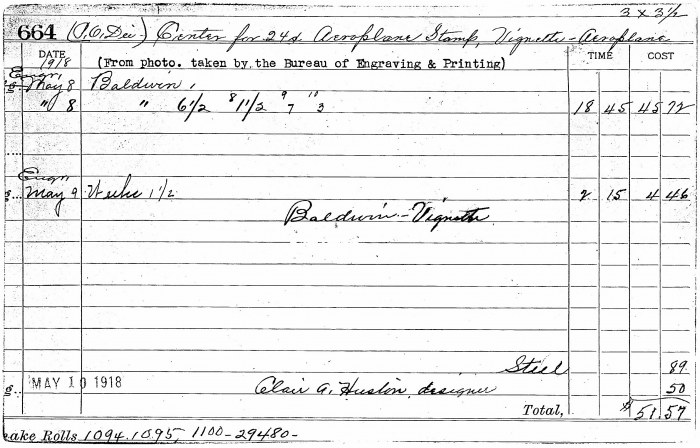 3 x 3 1/2
664 (P.O. Die) Center for 24¢ Aeroplane Stamp, Vignette - Aeroplane
DATE TIME COST
1918 (From photo. taken by the Bureau of Engraving & Printing)
Engr.
g. May 8 Baldwin,
" 8 " 6 1/2 8 11 1/2 9 7 10 3 18 45 45 72
Engr.
g... May 9 Weeks 1 1/2 2 15 4 46
Baldwin - Vignette
Steel 89
g... MAY 10 1918 Clair A. Huston, designer 50
Total, $ 51.57
ake Rolls 1094.1095, 1100-29480-